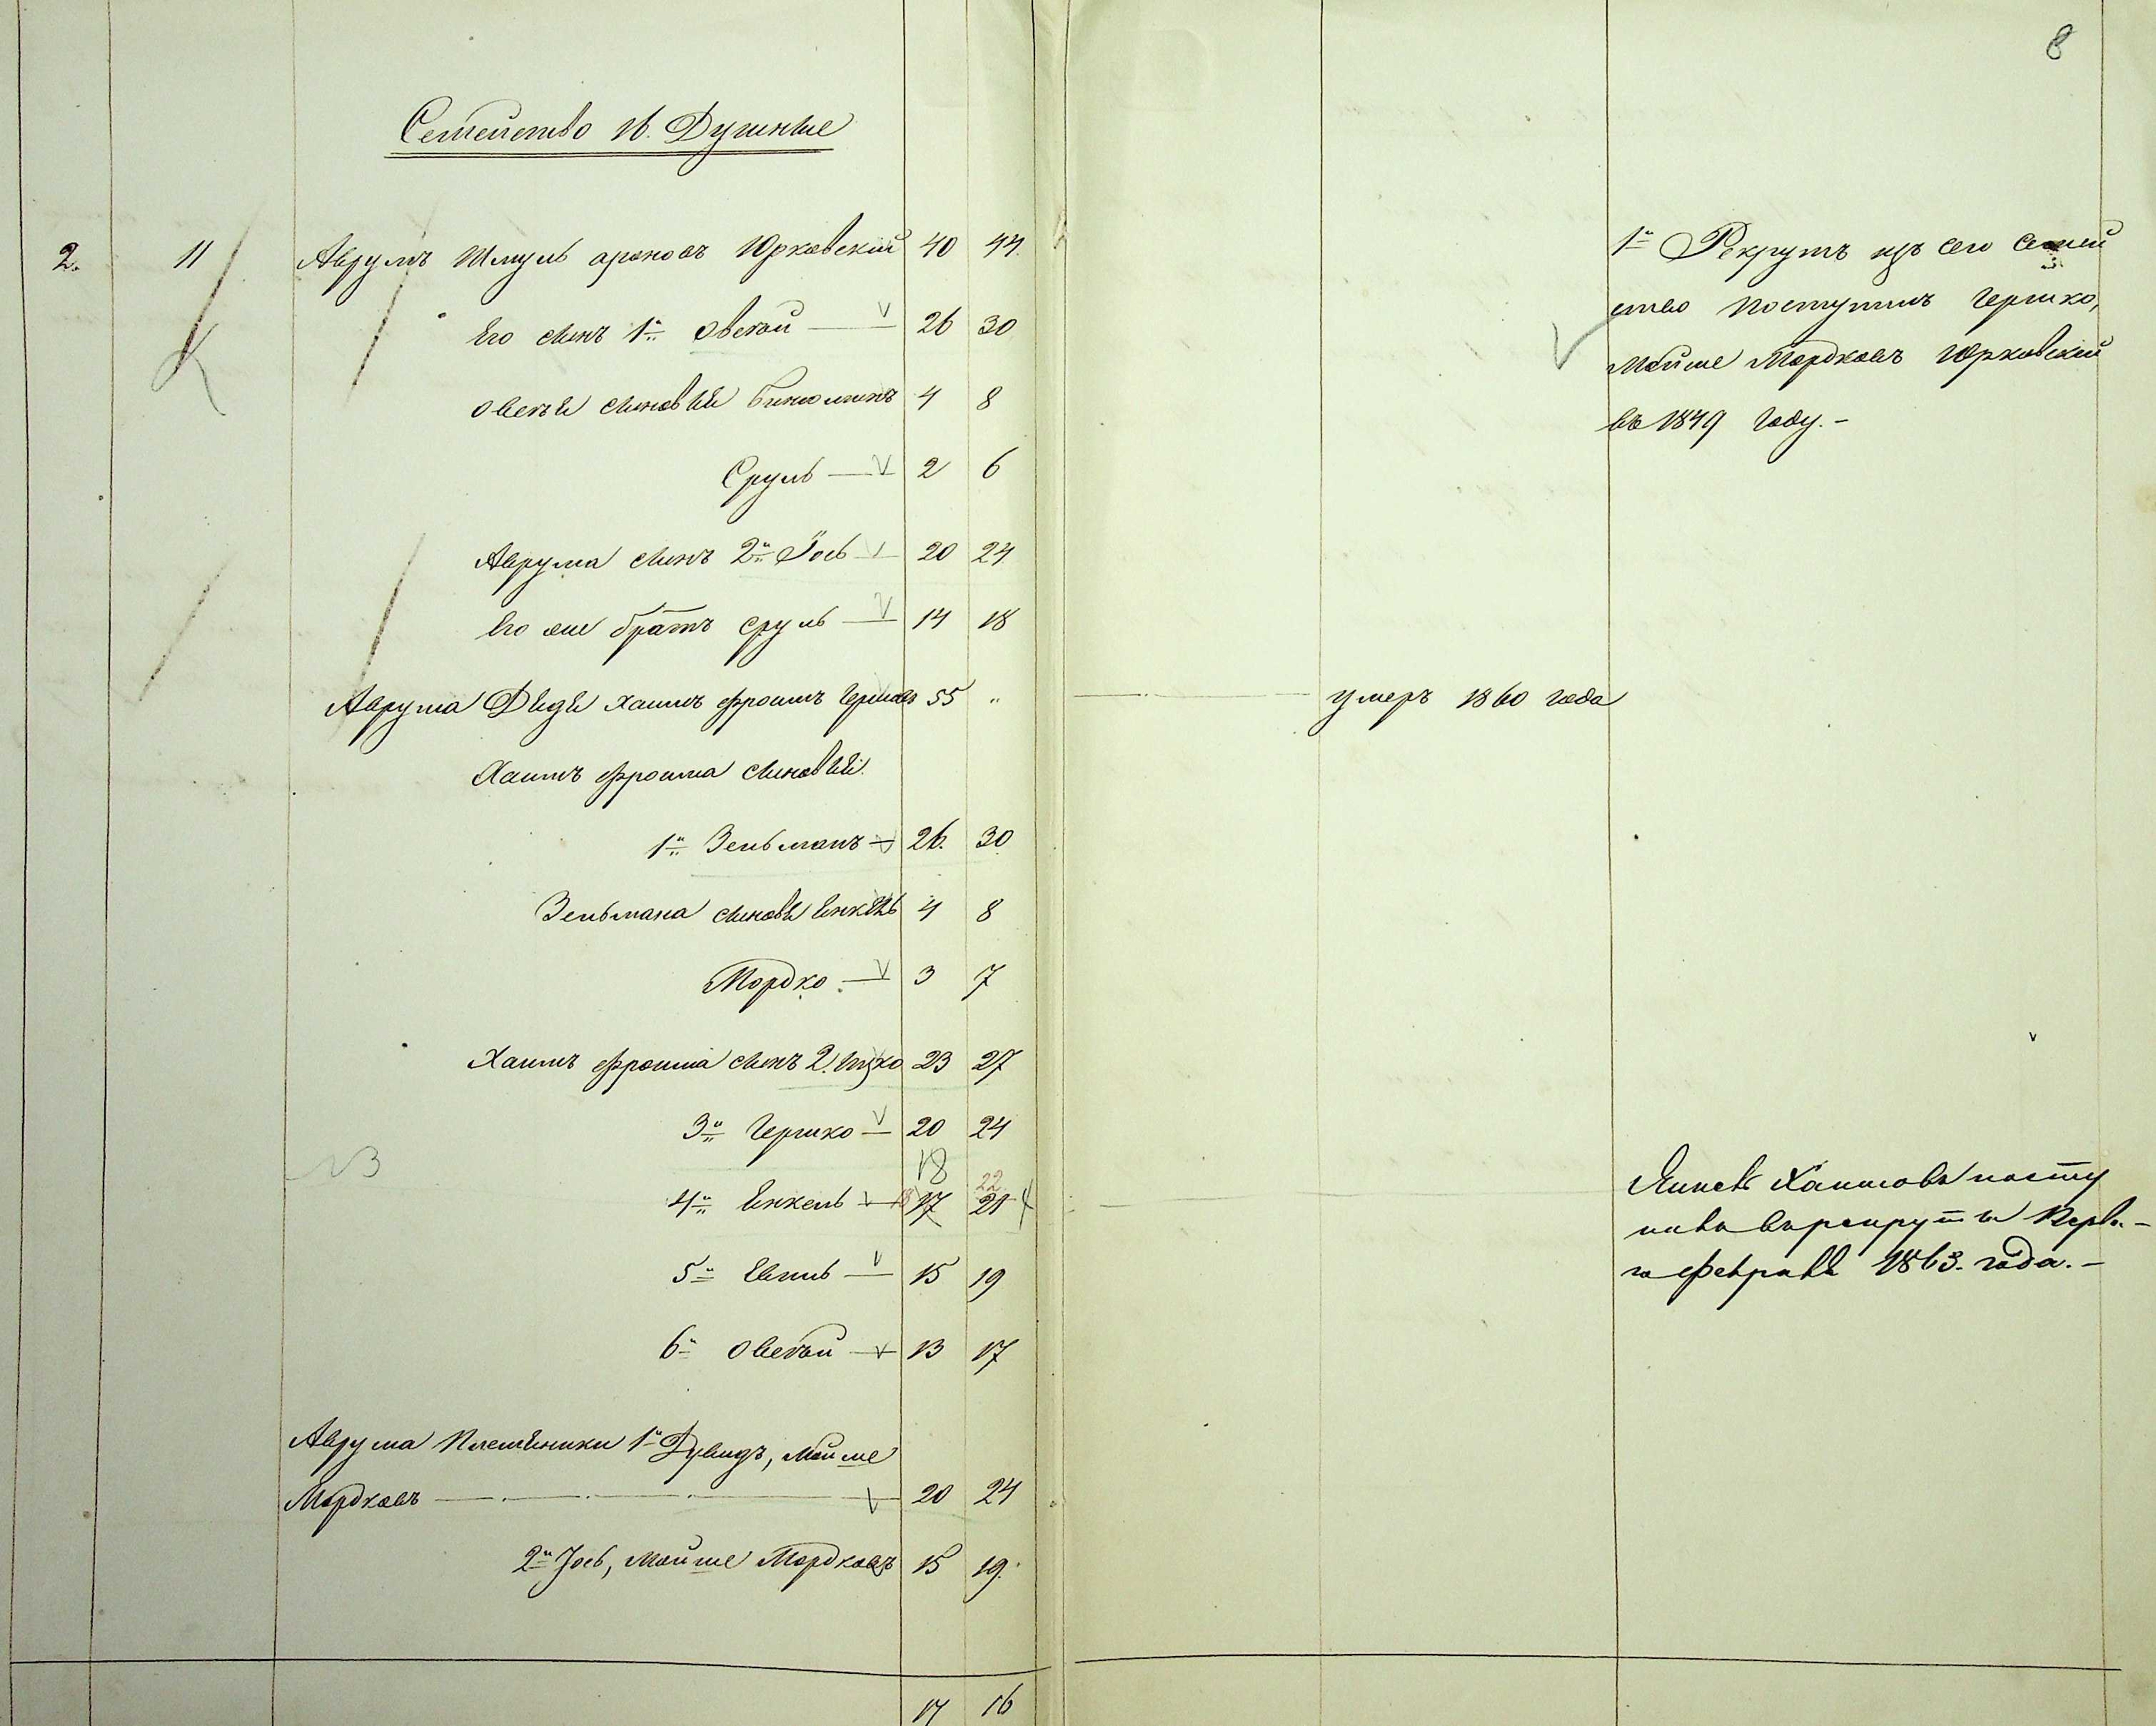 8
Семейство 16. Душные
2. 11 Аврумъ Шмуль ароновъ Юрковский 40 44.
Его сынъ 1й Овсей 26 30
Овсея сыновья Биньоминъ 4 8
Сруль 2 6
Аврума сынъ 2й Іось 20 24
Его же братъ Сруль 14 18
Аврума Дядя Хаимъ Фроимъ Гершовъ 55 " умеръ 1860 года
Хаимъ Фроима сыновья
1й Зельманъ 26. 30
Зельмана сыновья Енкель 4 8
Мордко 3 7
Хаимъ Фроима сынъ 2. Ицко 23 27
3й Гершко 20 24
18 22
4й Енкель 18 17 21
5й Евель 15 19
6й Овсей 13 17
Аврума Племѣники 1й Дувидъ, Мойше
Мордковъ 20 24
2й Іось, Мойше Мордковъ 15 19.
17 16
1й Рекрутъ изъ сего семей
ства поступилъ Гершко,
Мойше Мордковъ Юрковский
въ 1849 году.-
Хаимовъ посту
пилъ в рекруты Перва-
го февраля 1863. года.-